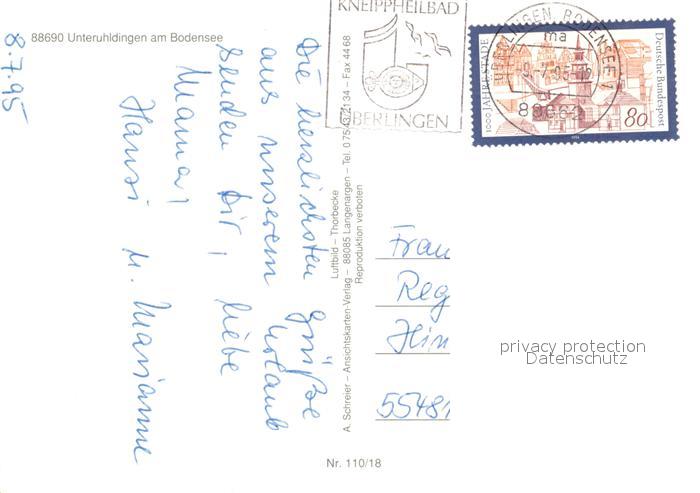 88690 Unteruhldingen am Bodensee
8.7.95
Die herzlichsten Grüße
aus unserem Urlaub
senden Dir, liebe
Mama,
Hansi u. Marianne
Luftbild – Thorbecke
A. Schreier – Ansichtskarten-Verlag – 88085 Langenargen – Tel. 0 75 43/21 34 – Fax 44 68
Reproduktion verboten
Nr. 110/18
KNEIPPHEILBAD
ÜBERLINGEN
ÜBERLINGEN, BODENSEE 1
ma
88662
1000 JAHRE STADE
Deutsche Bundespost
80
Frau
Reg
Hin
55481
privacy protection
Datenschutz